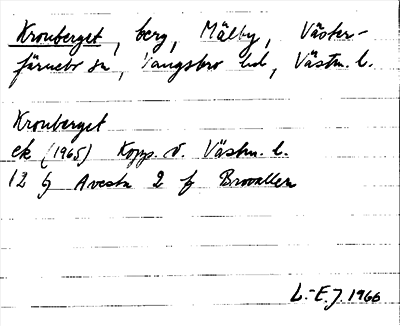 Kronberget, berg, Mälby, Väster-
färnebo sn, Vangsbro hd, Västm. l.
Kronberget
ek (1965) Kopp. o. Västm. l.
12 G Avesta 2 f Brovallen
L.-E.J. 1966